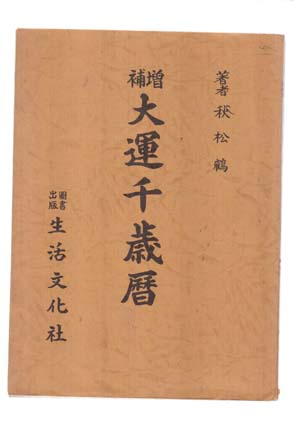 著者 秋松鶴
增補 大運千歲曆
圖書出版 生活文化社